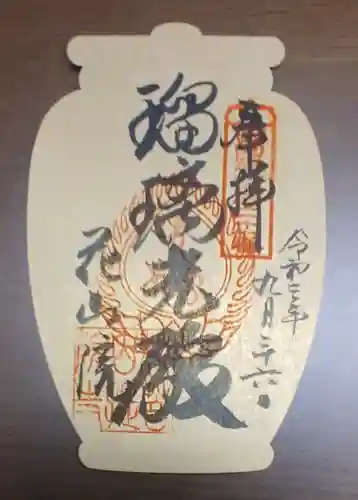 奉拝
令和三年
九月二十六日
瑠璃光殿
花山院